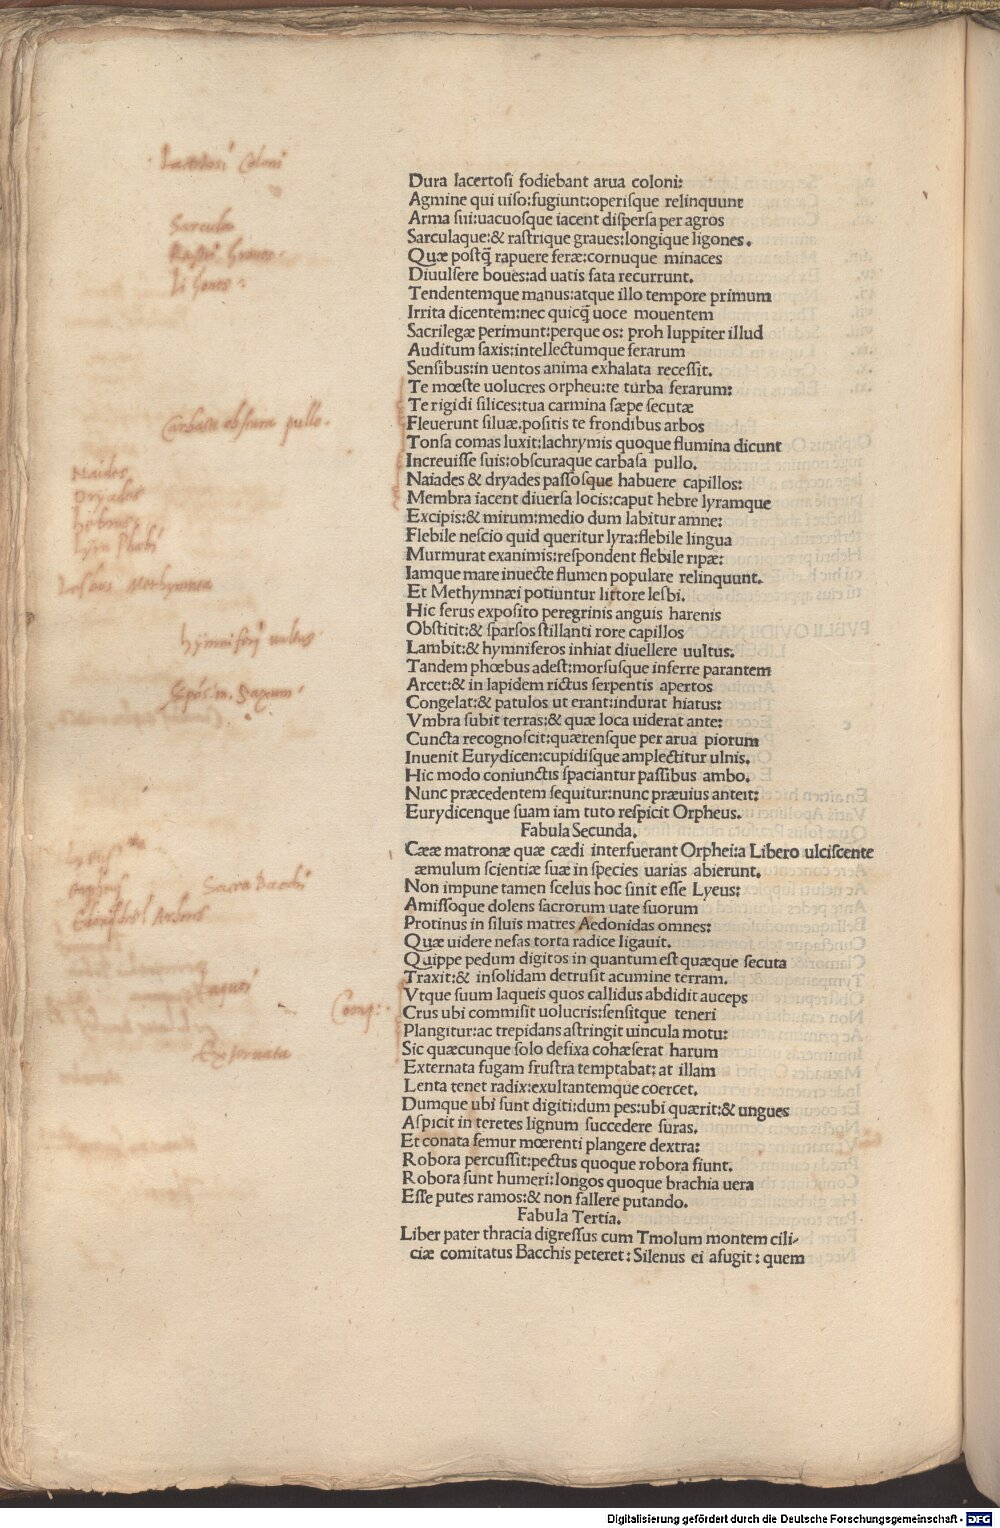 Lacertosi Coloni
Dura lacertosi fodiebant arua coloni:
Agmine qui uiso:fugiunt:operisque relinquunt
Arma sui:uacuosque iacent dispersa per agros
Sarcula
Sarculaque:& rastrique graues:longique ligones.
Rastri Graues
Quæ postq̃ rapuere feræ:cornuque minaces
Diuulsere boues:ad uatis fata recurrunt.
Ligones
Tendentemque manus:atque illo tempore primum
Irrita dicentem:nec quicq̃ uoce mouentem
Sacrilegæ perimunt:perque os: proh Iuppiter illud
Auditum saxis:intellectumque ferarum
Sensibus:in uentos anima exhalata recessit.
Te mœste uolucres orpheu:te turba ferarum:
Te rigidi silices:tua carmina sæpe secutæ
Carbasa obscura pullo.
Fleuerunt siluæ.positis te frondibus arbos
Tonsa comas luxit:lachrymis quoque flumina dicunt
Increuisse suis:obscuraque carbasa pullo.
Naides
Naiades & dryades passosque habuere capillos:
Dryades
Membra iacent diuersa locis:caput hebre lyramque
hebrus
Excipis:& mirum:medio dum labitur amne:
Lyra Phœbi
Flebile nescio quid queritur lyra:flebile lingua
Murmurat exanimis:respondent flebile ripæ:
Iamque mare inuecte flumen populare relinquunt.
Lesbos Methymnæa
Et Methymnæi potiuntur littore lesbi.
Hic ferus exposito peregrinis anguis harenis
Obstitit:& sparsos stillanti rore capillos
hymniferi uultus
Lambit:& hymniferos inhiat diuellere uultus.
Tandem phœbus adest:morsusque inferre parantem
Arcet:& in lapidem rictus serpentis apertos
in. Saxum
Congelat:& patulos ut erant:indurat hiatus:
Vmbra subit terras:& quæ loca uiderat ante:
Cuncta recognoscit:quærensque per arua piorum
Inuenit Eurydicen:cupidisque amplectitur ulnis.
Hic modo coniunctis spaciantur passibus ambo.
Nunc præcedentem sequitur:nunc præuius anteit:
Eurydicenque suam iam tuto respicit Orpheus.
Fabula Secunda.
Cææ matronæ quæ cædi interfuerant Orphei:a Libero ulciscente
æmulum scientiæ suæ in species uarias abierunt.
Sacra Bacchi
Non impune tamen scelus hoc sinit esse Lyeus:
Amissoque dolens sacrorum uate suorum
Protinus in siluis matres Aedonidas omnes:
Quæ uidere nefas torta radice ligauit.
Quippe pedum digitos in quantum est quæque secuta
Traxit:& insolidam detrusit acumine terram.
Laquei
Vtque suum laqueis quos callidus abdidit auceps
Comp:
Crus ubi commisit uolucris:sensitque teneri
Plangitur:ac trepidans astringit uincula motu:
Sic quæcunque solo defixa cohæserat harum
Externata
Externata fugam frustra temptabat: at illam
Lenta tenet radix:exultantemque coercet.
Dumque ubi sunt digiti:dum pes:ubi quærit:& ungues
Aspicit in teretes lignum succedere suras.
Et conata femur mœrenti plangere dextra:
Robora percussit:pectus quoque robora fiunt.
Robora sunt humeri:longos quoque brachia uera
Esse putes ramos:& non fallere putando.
Fabula Tertia.
Liber pater thracia digressus cum Tmolum montem cili-
ciæ comitatus Bacchis peteret: Silenus ei afugit: quem
Digitalisierung gefördert durch die Deutsche Forschungsgemeinschaft - DFG